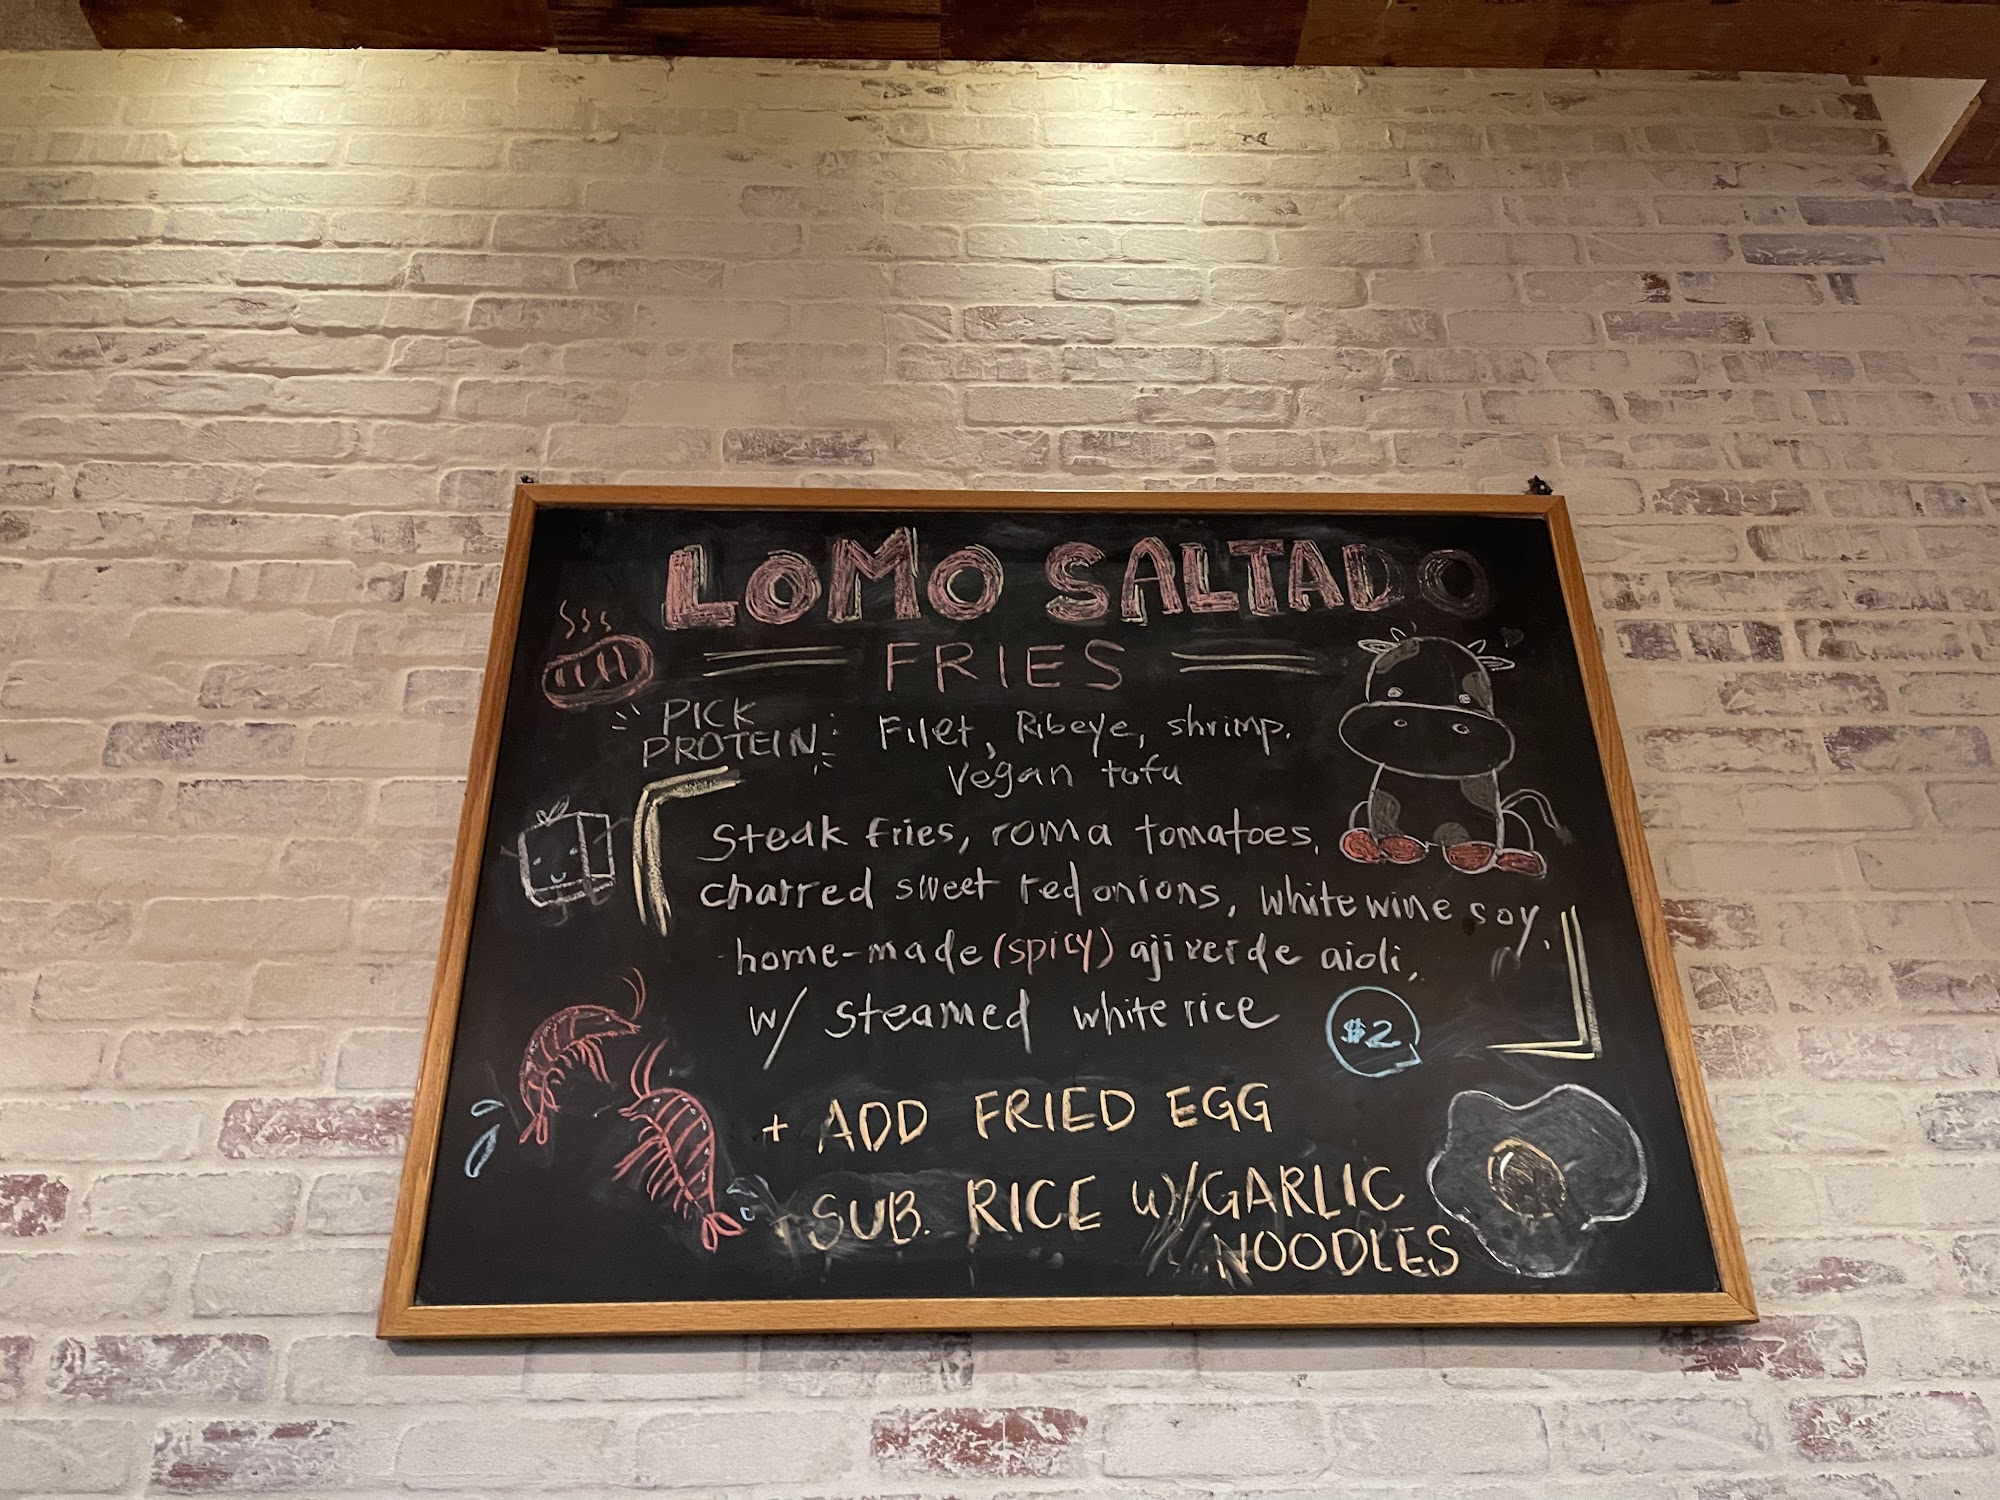 LOMO SALTADO
FRIES
PICK
PROTEIN: Filet, Ribeye, shrimp.
vegan tofu
Steak fries, roma tomatoes,
charred sweet red onions, white wine soy,
home-made (spicy) aji verde aioli,
w/ steamed white rice
$2
+ ADD FRIED EGG
SUB. RICE w/GARLIC
NOODLES